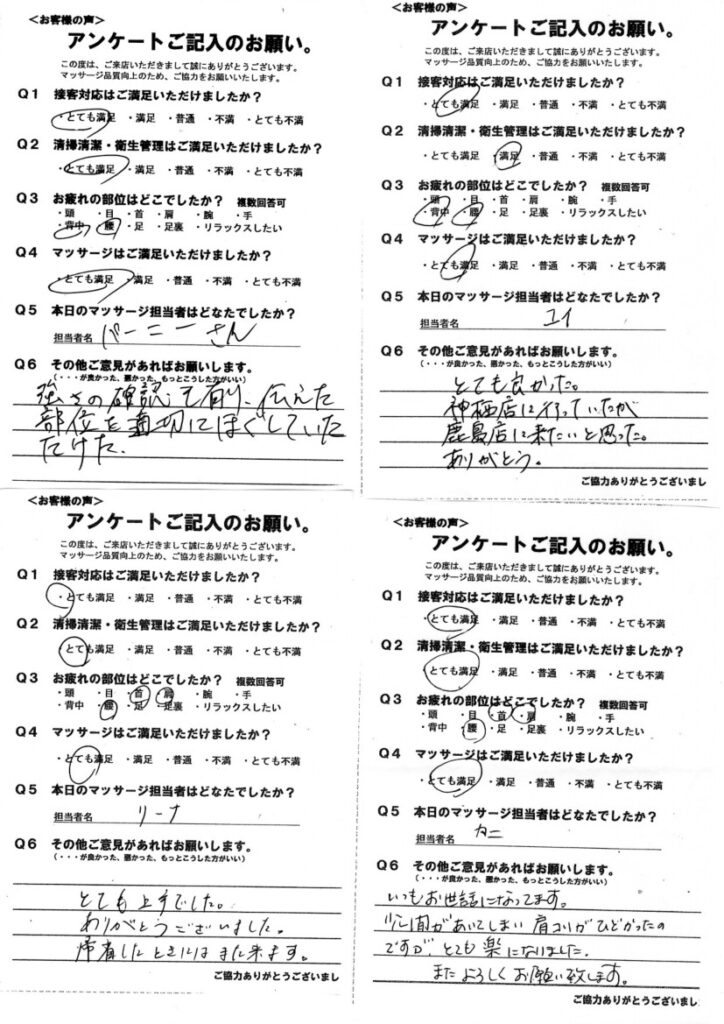 ＜お客様の声＞
アンケートご記入のお願い。
この度は、ご来店いただきまして誠にありがとうございます。
マッサージ品質向上のため、ご協力をお願いいたします。
Q1 接客対応はご満足いただけましたか？
・とても満足 ・満足 ・普通 ・不満 ・とても不満
Q2 清掃清潔・衛生管理はご満足いただけましたか？
・とても満足 ・満足 ・普通 ・不満 ・とても不満
Q3 お疲れの部位はどこでしたか？ 複数回答可
・頭 ・目 ・首 ・肩 ・腕 ・手
・背中 ・腰 ・足 ・足裏 ・リラックスしたい
Q4 マッサージはご満足いただけましたか？
・とても満足 ・満足 ・普通 ・不満 ・とても不満
Q5 本日のマッサージ担当者はどなたでしたか？
担当者名 バーニーさん
Q6 その他ご意見があればお願いします。
（・・・が良かった、悪かった、もっとこうした方がいい）
強さの確認も有り、伝えた
部位を適切にほぐしていた
だけた.
＜お客様の声＞
アンケートご記入のお願い。
この度は、ご来店いただきまして誠にありがとうございます。
マッサージ品質向上のため、ご協力をお願いいたします。
Q1 接客対応はご満足いただけましたか？
・とても満足 ・満足 ・普通 ・不満 ・とても不満
Q2 清掃清潔・衛生管理はご満足いただけましたか？
・とても満足 ・満足 ・普通 ・不満 ・とても不満
Q3 お疲れの部位はどこでしたか？ 複数回答可
・頭 ・目 ・首 ・肩 ・腕 ・手
・背中 ・腰 ・足 ・足裏 ・リラックスしたい
Q4 マッサージはご満足いただけましたか？
・とても満足 ・満足 ・普通 ・不満 ・とても不満
Q5 本日のマッサージ担当者はどなたでしたか？
担当者名 ユイ
Q6 その他ご意見があればお願いします。
（・・・が良かった、悪かった、もっとこうした方がいい）
とても良かった。
神栖店に行っていたが
鹿島店に来たいと思った。
ありがとう。
ご協力ありがとうございまし
＜お客様の声＞
アンケートご記入のお願い。
この度は、ご来店いただきまして誠にありがとうございます。
マッサージ品質向上のため、ご協力をお願いいたします。
Q1 接客対応はご満足いただけましたか？
・とても満足 ・満足 ・普通 ・不満 ・とても不満
Q2 清掃清潔・衛生管理はご満足いただけましたか？
・とても満足 ・満足 ・普通 ・不満 ・とても不満
Q3 お疲れの部位はどこでしたか？ 複数回答可
・頭 ・目 ・首 ・肩 ・腕 ・手
・背中 ・腰 ・足 ・足裏 ・リラックスしたい
Q4 マッサージはご満足いただけましたか？
・とても満足 ・満足 ・普通 ・不満 ・とても不満
Q5 本日のマッサージ担当者はどなたでしたか？
担当者名 リーナ
Q6 その他ご意見があればお願いします。
（・・・が良かった、悪かった、もっとこうした方がいい）
とても上手でした。
ありがとうございました。
帰省したときにはまた来ます。
ご協力ありがとうございまし
＜お客様の声＞
アンケートご記入のお願い。
この度は、ご来店いただきまして誠にありがとうございます。
マッサージ品質向上のため、ご協力をお願いいたします。
Q1 接客対応はご満足いただけましたか？
・とても満足 ・満足 ・普通 ・不満 ・とても不満
Q2 清掃清潔・衛生管理はご満足いただけましたか？
・とても満足 ・満足 ・普通 ・不満 ・とても不満
Q3 お疲れの部位はどこでしたか？ 複数回答可
・頭 ・目 ・首 ・肩 ・腕 ・手
・背中 ・腰 ・足 ・足裏 ・リラックスしたい
Q4 マッサージはご満足いただけましたか？
・とても満足 ・満足 ・普通 ・不満 ・とても不満
Q5 本日のマッサージ担当者はどなたでしたか？
担当者名 カニ
Q6 その他ご意見があればお願いします。
（・・・が良かった、悪かった、もっとこうした方がいい）
いつもお世話になってます。
少し間があいてしまい肩コリがひどかったの
ですが、とても楽になりました.
またよろしくお願い致します。
ご協力ありがとうございまし